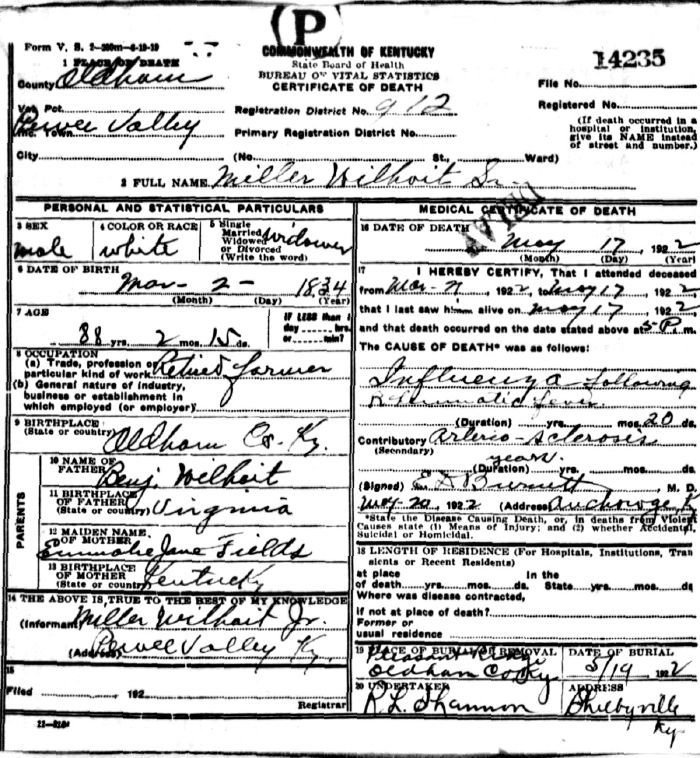 (P)
Form V. S. 1-300m-6-19-19
COMMONWEALTH OF KENTUCKY
State Board of Health
BUREAU OF VITAL STATISTICS
CERTIFICATE OF DEATH
14235
1 PLACE OF DEATH
County Oldham
File No.
Vot. Pct. Registration District No. 912
Registered No.
Pewee Valley
Inc. Town Primary Registration District No.
(If death occurred in a hospital or institution, give its NAME instead of street and number.)
City (No. St., Ward)
2 FULL NAME Miller Wilhoit Sr.
PERSONAL AND STATISTICAL PARTICULARS
3 SEX male
4 COLOR OR RACE white
5 Single Married Widowed or Divorced (Write the word) Widower
6 DATE OF BIRTH
Mar - 2 - 1834
(Month) (Day) (Year)
7 AGE
88 yrs. 2 mos. 15 ds.
If LESS than 1 day hrs. or min?
8 OCCUPATION
(a) Trade, profession or particular kind of work Retired farmer
(b) General nature of industry, business or establishment in which employed (or employer)
9 BIRTHPLACE
(State or country) Oldham Co. Ky.
PARENTS
10 NAME OF FATHER Benj. Wilhoit
11 BIRTHPLACE OF FATHER
(State or country) Virginia
12 MAIDEN NAME OF MOTHER
Jane Fields
13 BIRTHPLACE OF MOTHER
(State or country) Kentucky
14 THE ABOVE IS TRUE TO THE BEST OF MY KNOWLEDGE
(Informant) Miller Wilhoit Jr.
(Address) Pewee Valley Ky.
15
Filed , 192
Registrar
MEDICAL CERTIFICATE OF DEATH
16 DATE OF DEATH
May 17 , 1922
(Month) (Day) (Year)
17 I HEREBY CERTIFY, That I attended deceased
from Mar , 1922, to May 17, 1922
that I last saw him alive on May 17, 1922
and that death occurred on the date stated above at 5 P.m.
The CAUSE OF DEATH* was as follows:
Influenza following
Rheumatic Fever
(Duration) yrs. mos. 20 ds.
Contributory Arterio-sclerosis
(Secondary)
years.
(Duration) yrs. mos. ds.
(Signed) Burnett M. D.
May 20, 1922 (Address) Anchorage, K
*State the Disease Causing Death, or, in deaths from Violent Causes state (1) Means of Injury; and (2) whether Accidental, Suicidal or Homicidal.
18 LENGTH OF RESIDENCE (For Hospitals, Institutions, Transients or Recent Residents)
at place of death yrs. mos. ds. In the State yrs. mos. ds
Where was disease contracted,
if not at place of death?
Former or
usual residence
19 PLACE OF BURIAL OR REMOVAL
Pleasant Ridge
Oldham Co Ky
DATE OF BURIAL
5/19 1922
20 UNDERTAKER
R. L. Shannon
ADDRESS
Shelbyville
Ky.